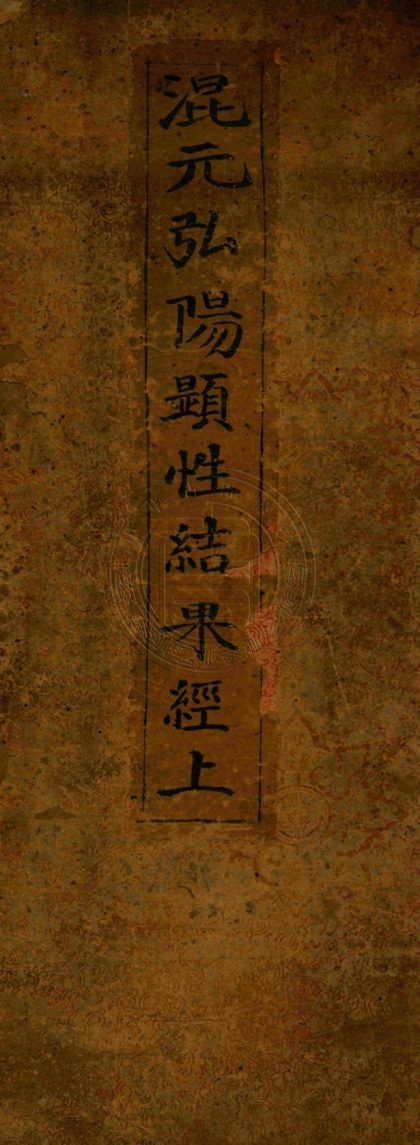 混元弘陽顕性結果經上